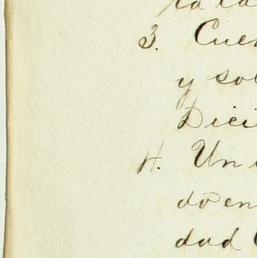 3. Cuen
y sol
Dici
4. Un i
do en
dad